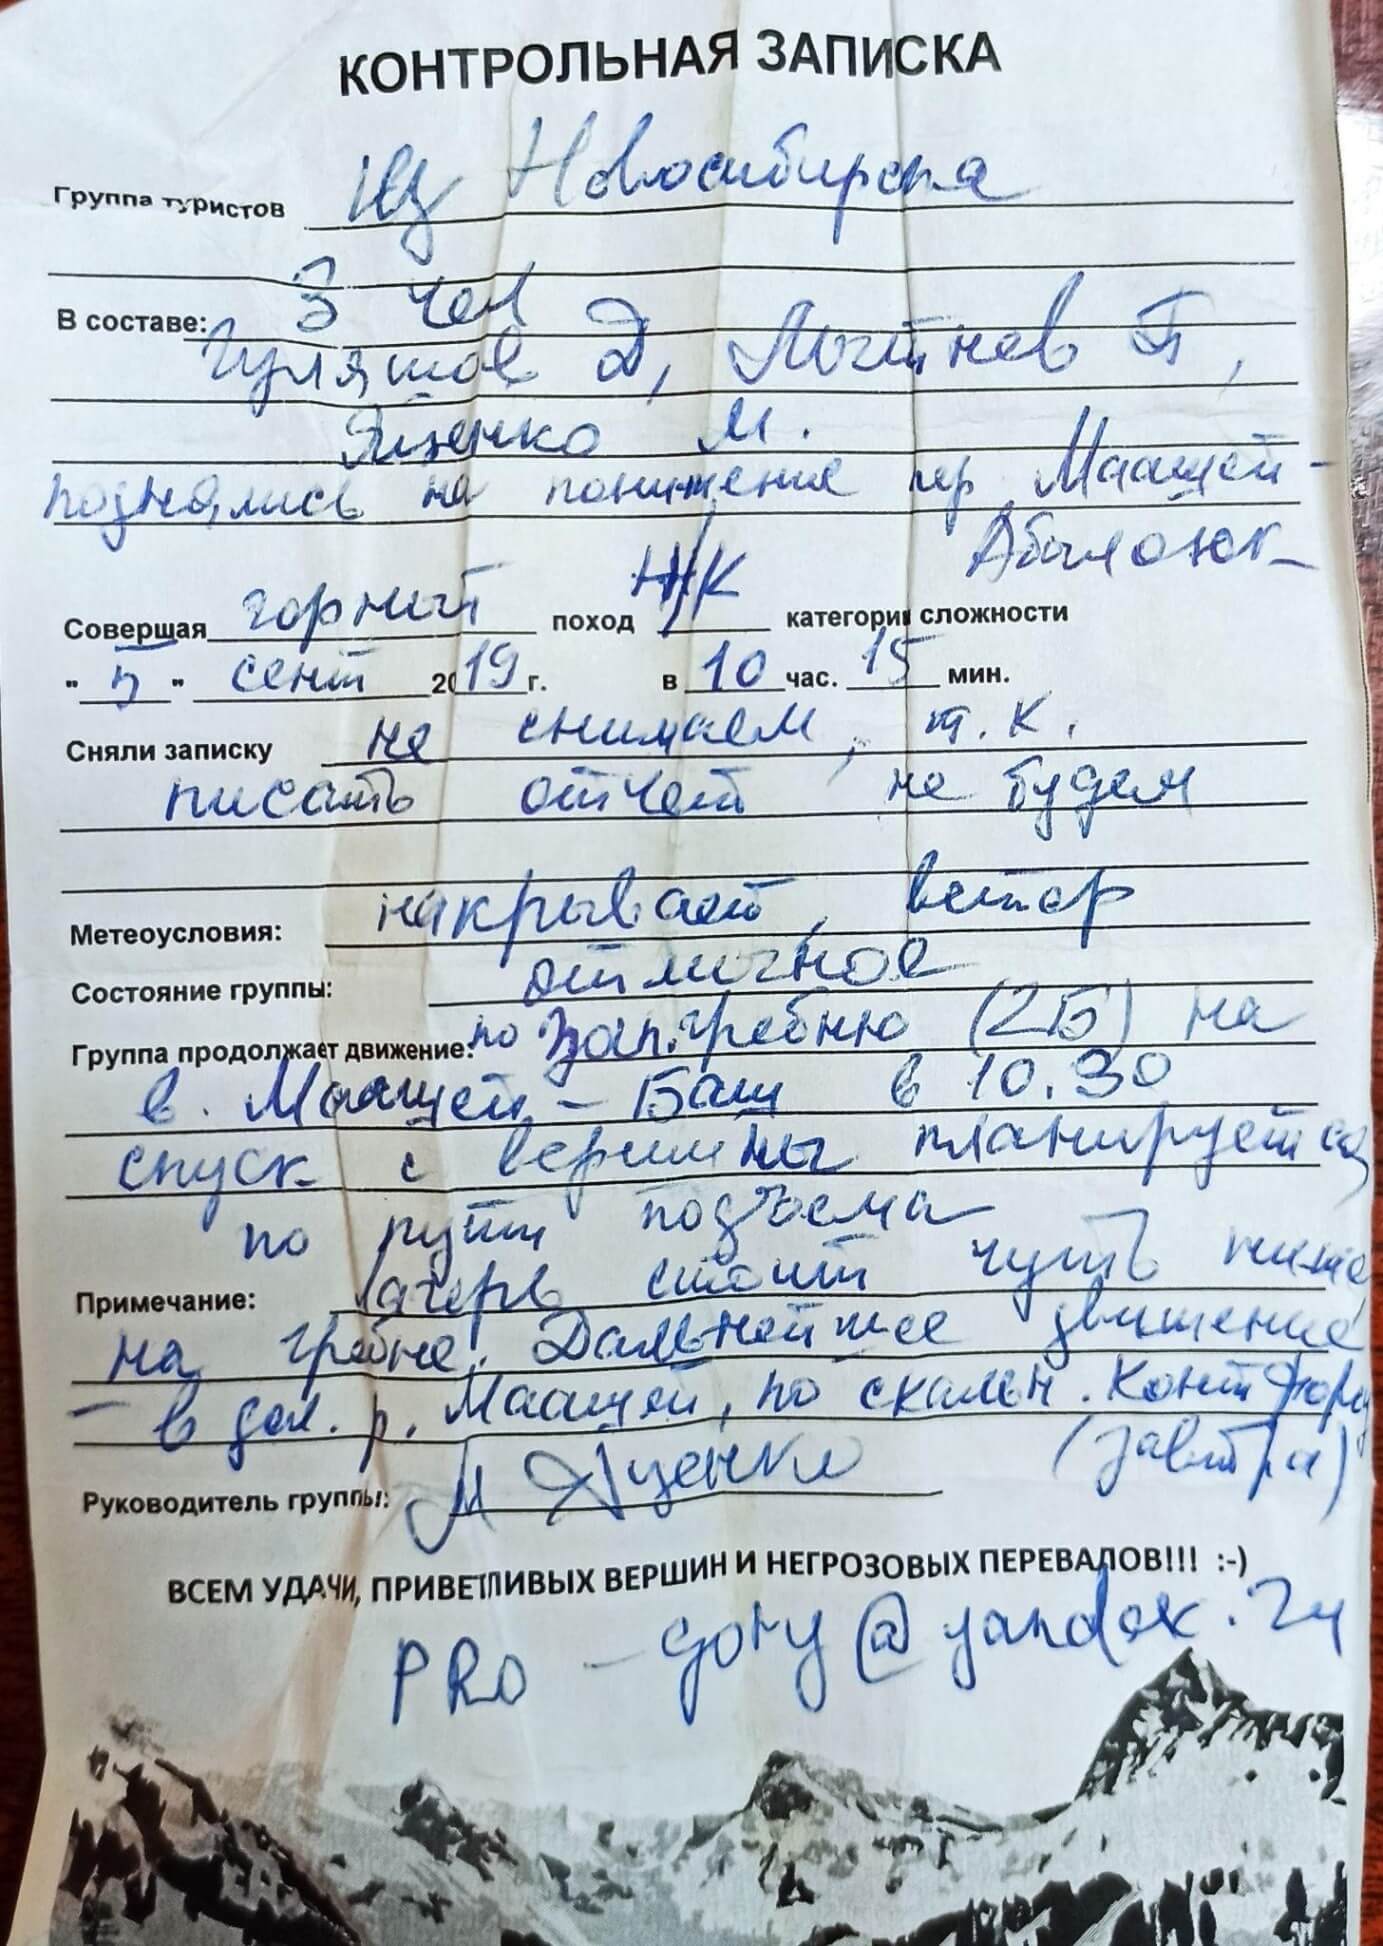 КОНТРОЛЬНАЯ ЗАПИСКА
Группа туристов Из Новосибирска
В составе: 3 чел
Гуляшов Д, Логинов П,
Яценко М.
поднялись на понижение пер Маашей-
Абылоюк-
Совершая горный поход Н/К категории сложности
"5" сент 2019 г. в 10 час. 15 мин.
Сняли записку не снимаем, т.к.
писать отчет не будем
Метеоусловия: накрывает, ветер
Состояние группы: отличное
Группа продолжает движение: по Зап. гребню (2Б) на
в. Маашей-Баш в 10.30
спуск с вершины планируется
по пути подъема
Примечание: Лагерь стоит чуть ниже
на гребне. Дальнейшее движение
- в дол. р. Маашей, по скальн. контфорсу
(завтра)
Руководитель группы: М Яценко
ВСЕМ УДАЧИ, ПРИВЕТЛИВЫХ ВЕРШИН И НЕГРОЗОВЫХ ПЕРЕВАЛОВ!!! :-)
PRO-gory@yandex.ru